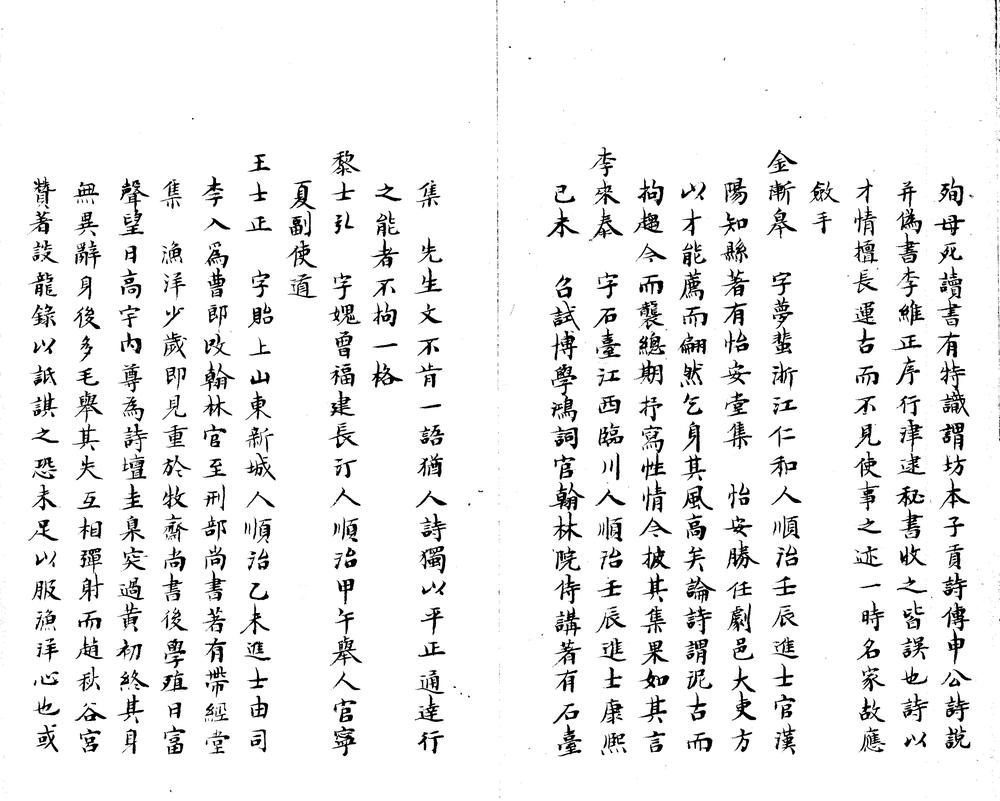 殉母死讀書有特識謂坊本子貢詩傳申公詩說
并偽書李維正序行津逮秘書收之皆誤也詩以
才情擅長運古而不見使事之迹一時名家故應
斂手
金漸皋　字夢蜚浙江仁和人順治壬辰進士官漢
陽知縣著有怡安堂集　怡安勝任劇邑大吏方
以才能薦而翩然乞身其風高矣論詩謂泥古而
拘趨今而襲總期抒寫性情今披其集果如其言
李來泰　字石臺江西臨川人順治壬辰進士康熙
己未　召試博學鴻詞官翰林院侍講著有石臺
集　先生文不肯一語猶人詩獨以平正通達行
之能者不拘一格
黎士弘　字媿曾福建長汀人順治甲午舉人官寧
夏副使道
王士正　字貽上山東新城人順治乙未進士由司
李入爲曹郎改翰林官至刑部尚書著有帶經堂
集　漁洋少歲即見重於牧齋尚書後學殖日富
聲望日高宇內尊為詩壇圭臬突過黃初終其身
無異辭身後多毛舉其失互相彈射而趙秋谷宮
贊著談龍錄以詆諆之恐未足以服漁洋心也或